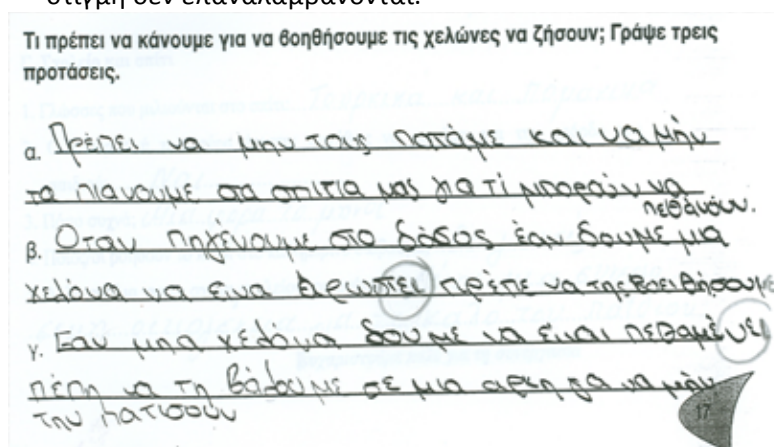 στιγμή δεν επαναλαμβάνονται.
Τι πρέπει να κάνουμε για να βοηθήσουμε τις χελώνες να ζήσουν; Γράψε τρεις
προτάσεις.
α. Πρέπει να μην τους πατάμε και να μήν
τα πιάνουμε στα σπιτια μας γιατί μπορούν να
πεθάνουν.
β. Οταν πηγένουμε στο δάσος έαν δουμε μια
χελόνα να εινα άρωστει πρέπε να της βοειθήσουμε
γ. Εαν μηα χελόνα δουμε να είναι πεθαμένει
πέπη να τη βάλουμε σε μια να μήν
την πατισουν
17